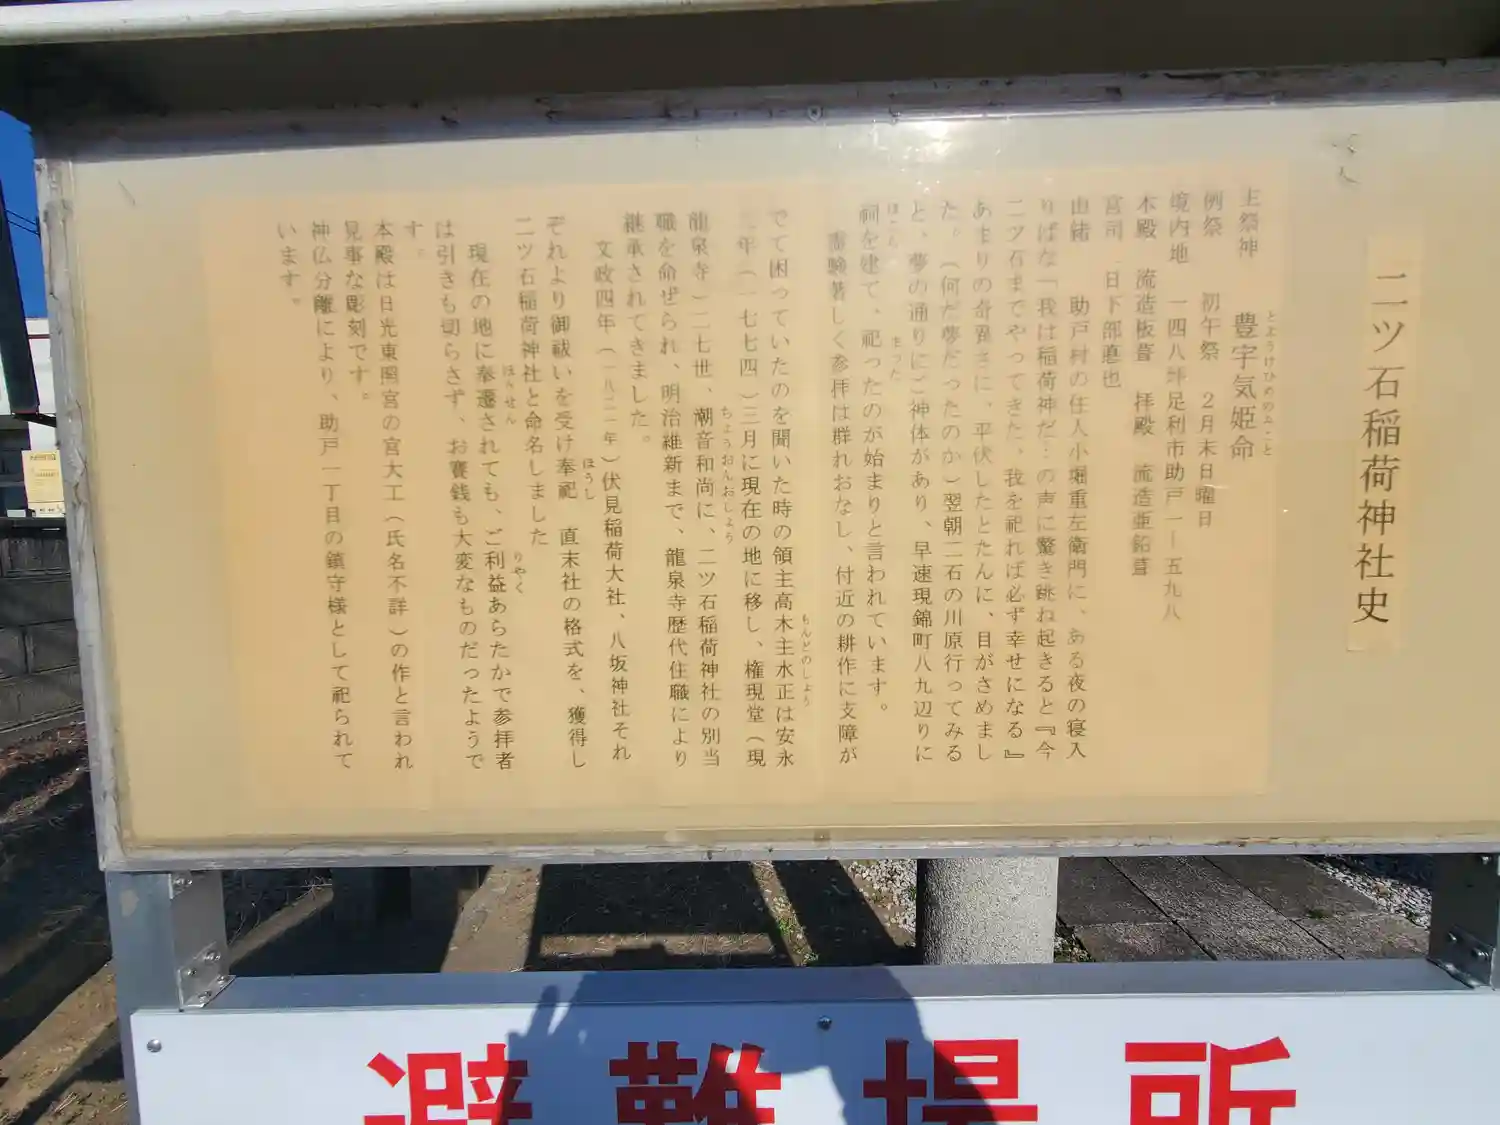 二ツ石稲荷神社史
主祭神　豊宇気姫命
とようけひめのみこと
例祭　初午祭　２月末日曜日
境内地　一四八坪足利市助戸一ー五九八
本殿　流造板葺　拝殿　流造亜鉛葺
宮司　日下部惠也
由緒　助戸村の住人小堀重左衛門に、ある夜の寝入
りばな「我は稲荷神だ…の声に驚き跳ね起きると『今
二ツ石までやってきた、我を祀れば必ず幸せになる』
あまりの奇異さに、平伏したとたんに、目がさめまし
た。（何だ夢だったのか）翌朝二石の川原行ってみる
と、夢の通りにご神体があり、早速現錦町八九辺りに
祠を建て、祀ったのが始まりと言われています。
ほこら　まつった
霊験著しく参拝は群れおなし、付近の耕作に支障が
でて困っていたのを聞いた時の領主高木主水正は安永
もんどのしょう
年（一七七四）三月に現在の地に移し、権現堂（現
龍泉寺）二七世、潮音和尚に、二ツ石稲荷神社の別当
ちょうおんおしょう
職を命ぜられ、明治維新まで、龍泉寺歴代住職により
継承されてきました。
文政四年（一八二一年）伏見稲荷大社、八坂神社それ
ぞれより御祓いを受け奉祀　直末社の格式を、獲得し
ほうし
二ツ石稲荷神社と命名しました
現在の地に奉遷されても、ご利益あらたかで参拝者
ほんせん　りやく
は引きも切らさず、お賽銭も大変なものだったようで
す。
本殿は日光東照宮の宮大工（氏名不詳）の作と言われ
見事な彫刻です。
神仏分離により、助戸一丁目の鎮守様として祀られて
います。
避難場所